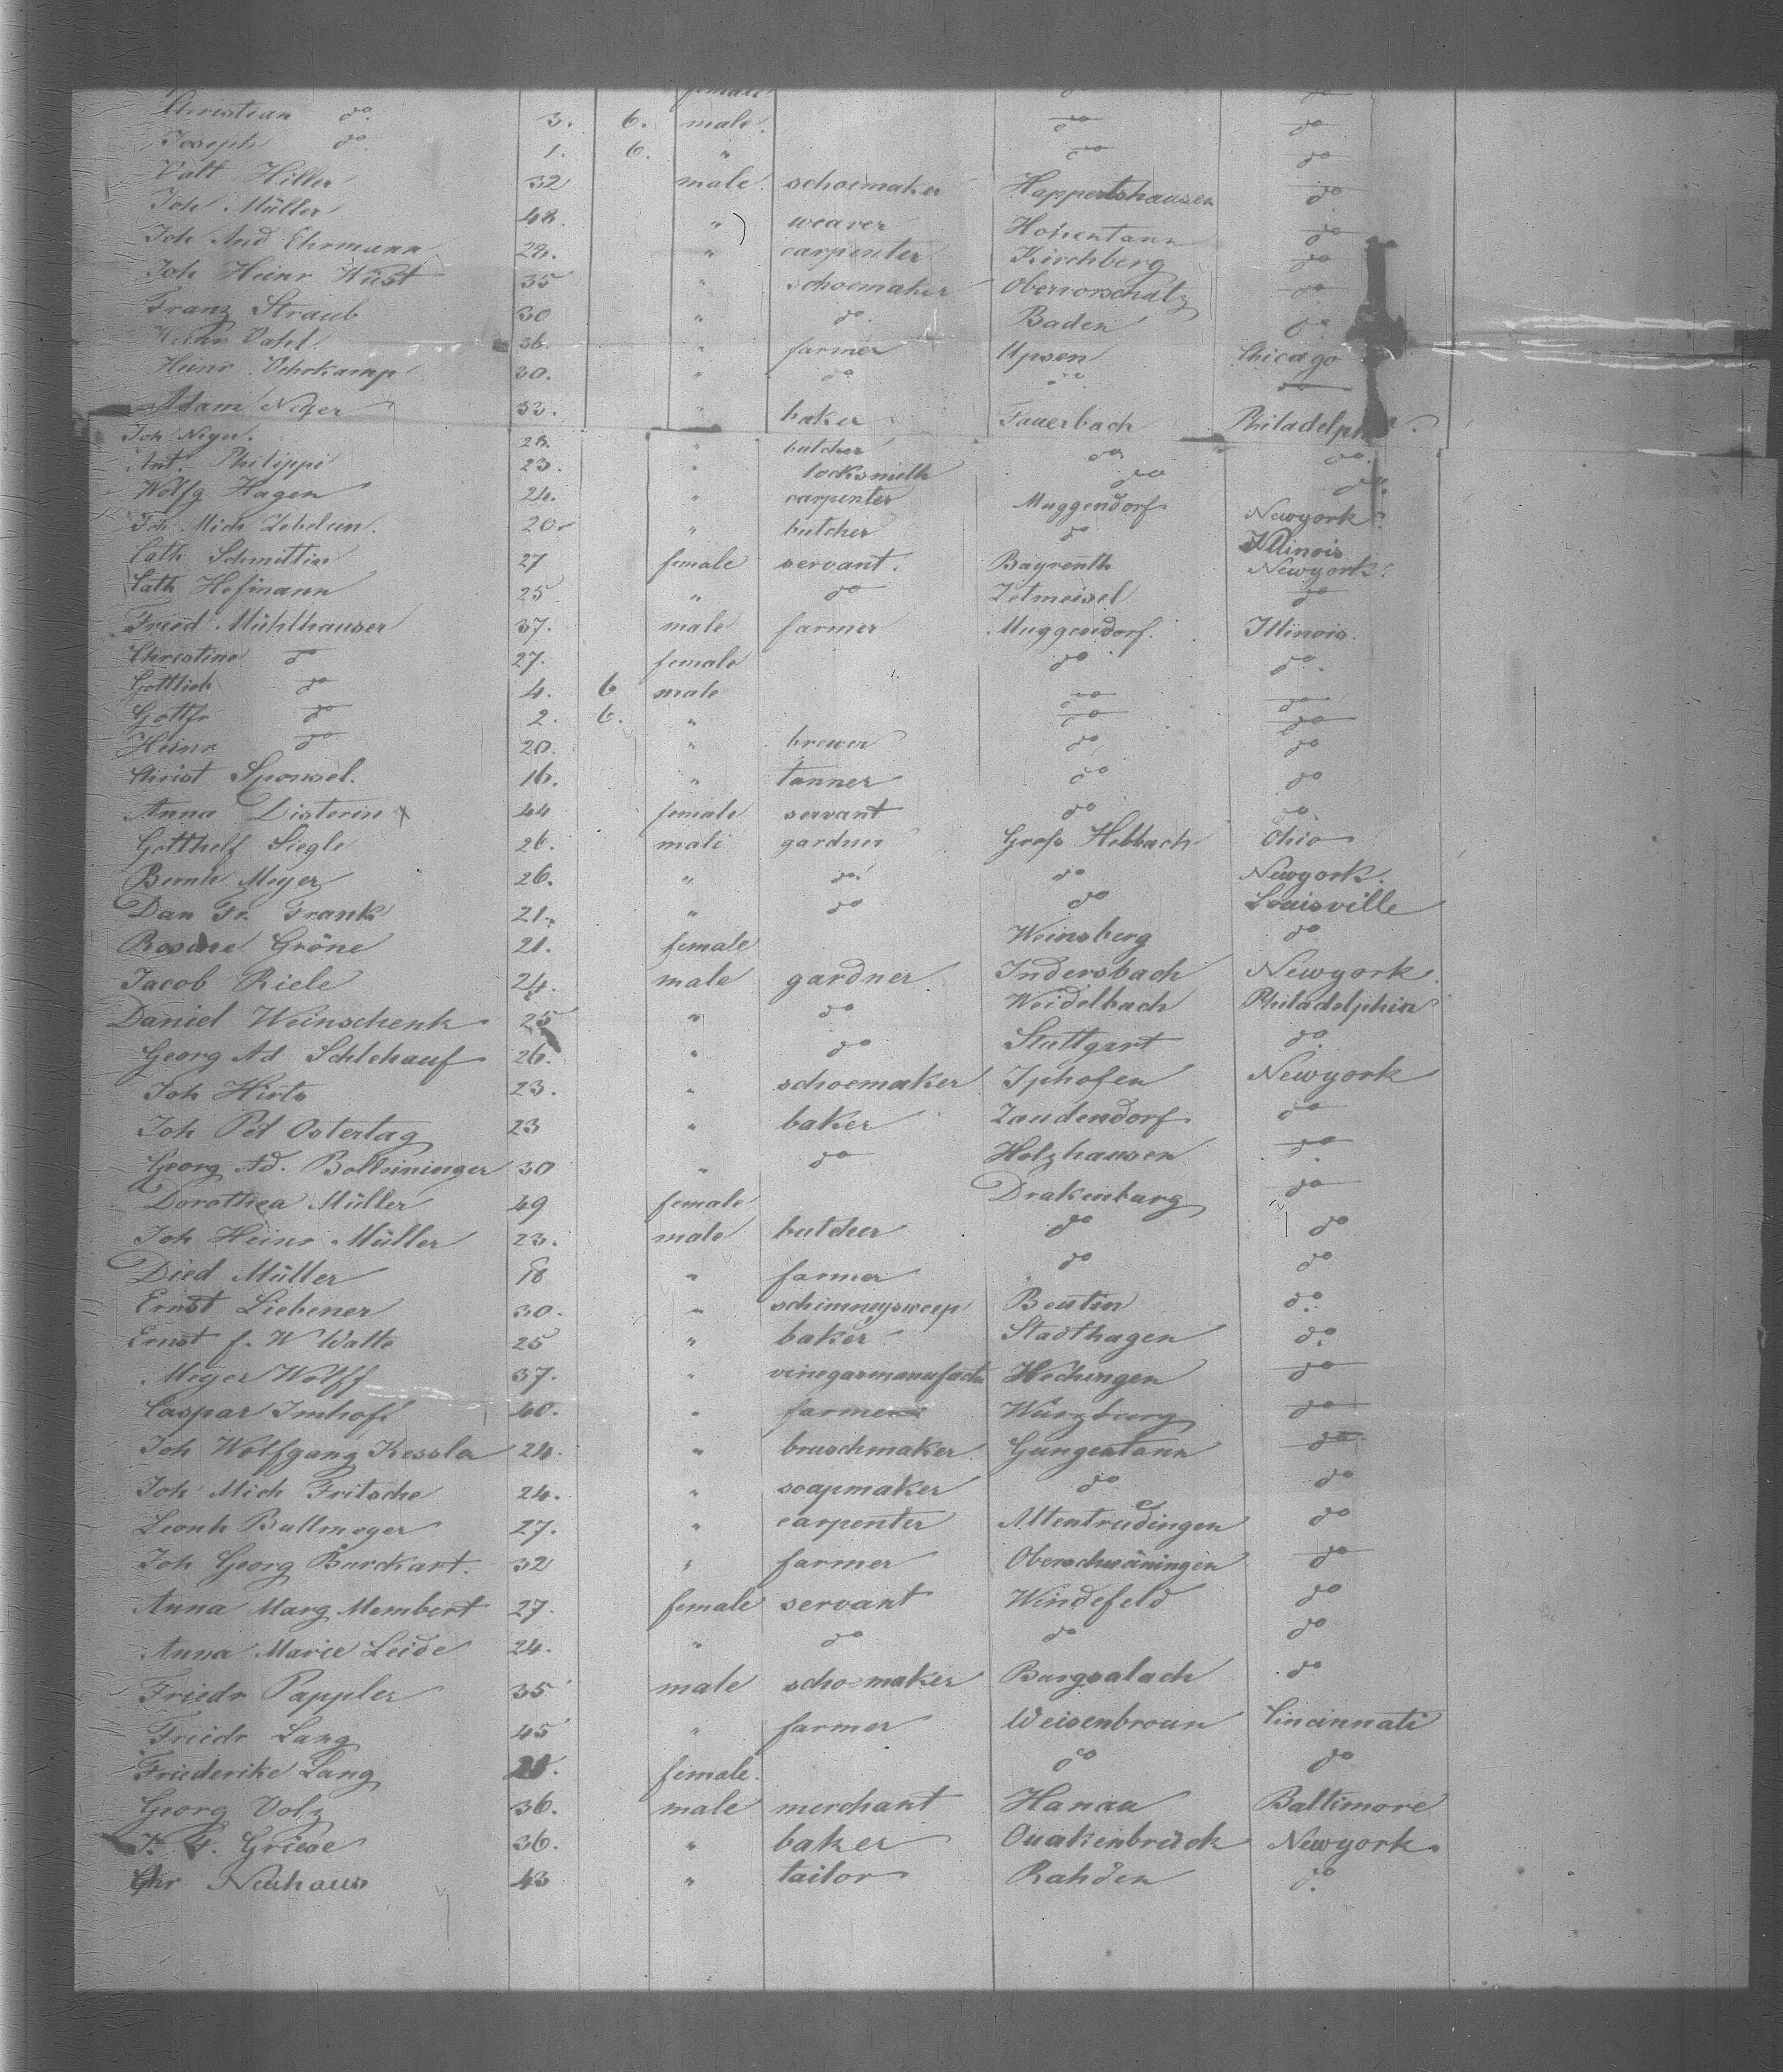 female do do
Christian do. 3. 6. male. do do
Joseph do. 1. 6. " do do
Valt Hiller 32 male. schoemaker Happertshausen do
Joh Müller 48. " weaver Hohentann do
Joh And Ehrmann 28. " carpenter Kirchberg do
Joh Heinr Wüst 35 " schoemaker Obervorschütz do
Franz Straub 30 " do. Baden do
Heinr Vahl. 36. " farmer Upsen Chicago
Heinr Vehrkamp 30. " do do do
Adam Neger 33. " baker Fauerbach Philadelph
Joh Neger. 28. " butcher do do.
Ant. Philippi 23. " locksmith do do
Wolfg Hagen 24. " carpenter Muggendorf Newyork.
Joh Mich Zebelein. 20 " butcher do Illinois
Cath Schmittin 27 female servant. Bayreuth Newyork.
Cath Hofmann 25 " do Zetmeisel do
Fried Mühlhauser 37. male farmer Muggendorf. Illinois.
Christine do 27. female do do.
Gottlieb do 4. 6 male do do
Gottfr do 2. 6. " do do
Heinr do 20. " brewer do do
Christ Sponsel. 16. " tanner do do
Anna Disterin x 44 female servant do do
Gotthelf Siegle 26. male gardner Groß Hebbach Ohio
Bernh Meyer 26. " do. do Newyork.
Dan Fr. Frank 21. " do do Louisville
Rosine Gröne 21. female Weinsberg do
Jacob Riele 24. male gardner Indersbach Newyork.
Daniel Weinschenk 25 " do Weidelbach Philadelphia
Georg Ad Schlehauf 26. " do Stuttgart do.
Joh Hirts 23. " schoemaker Iphofen Newyork
Joh Pet Ostertag 23 " baker Zaudendorf do
Georg Ad. Bolleininger 30 " do Holzhausen do.
Dorothea Müller 49 female Drakenburg do
Joh Heinr Müller 23. male butcher do do
Died Müller 18 " farmer do do
Ernst Liebener 30. " schimneysweep Beutin do.
Ernst f. W Walte 25 " baker Stadthagen do.
Meyer Wolff 37. " vinegarmanufactu Hechingen do
Caspar Imhof 40. " farmer Würzburg do
Joh Wolfgang Kessler 24. " bruschmaker Gungentann do
Joh Mich Fritsche 24. " soapmaker do do
Leonh Ballmeyer 27. " carpenter Altentrudingen do
Joh Georg Burckart. 32 " farmer Oberschwäningen do
Anna Marg Membert 27. female servant Windsfeld do
Anna Marie Leide 24. " do do do
Friedr Pappler 35 male schoemaker Burgsalach do
Friedr Lang 45 " farmer Weisenbronn Cincinnati
Friederike Lang female. do do
Georg Volz 36. male merchant Hanau Baltimore
Griese 36. " baker Quakenbrück Newyork.
Chr Neuhaus 43 " tailor Rahden do.